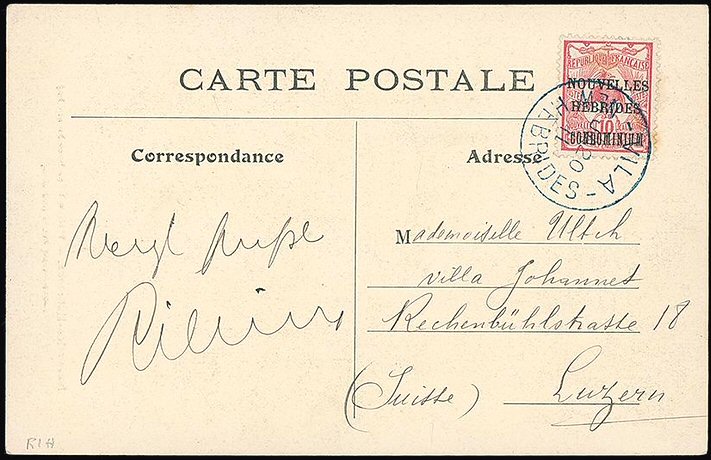 CARTE POSTALE
REPUBLIQUE FRANÇAISE
NOUVELLES
HÉBRIDES
10
CONDOMINIUM
VILA - HEBRIDES -
Correspondance
Adresse
Mademoiselle Ultch
Villa Johannet
Rechenbühlstrasse 18
(Suisse) Luzern